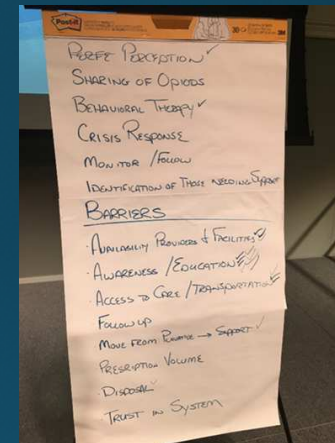 Post-it
PEREE PERCEPTION ✓
SHARING OF OPIODS
BEHAVIORAL THERAPY ✓
CRISIS RESPONSE
MONITOR / FOLLOW
IDENTIFICATION OF THOSE NEEDING SUPPORT
BARRIERS
· AVAILABILITY PROVIDERS & FACILITIES ✓
· AWARENESS / EDUCATION
· ACCESS TO CARE / TRANSPORTATION
FOLLOW UP
MOVE FROM → SUPPORT ✓
PRESCRIPTION VOLUME
· DISPOSAL ✓
TRUST IN SYSTEM